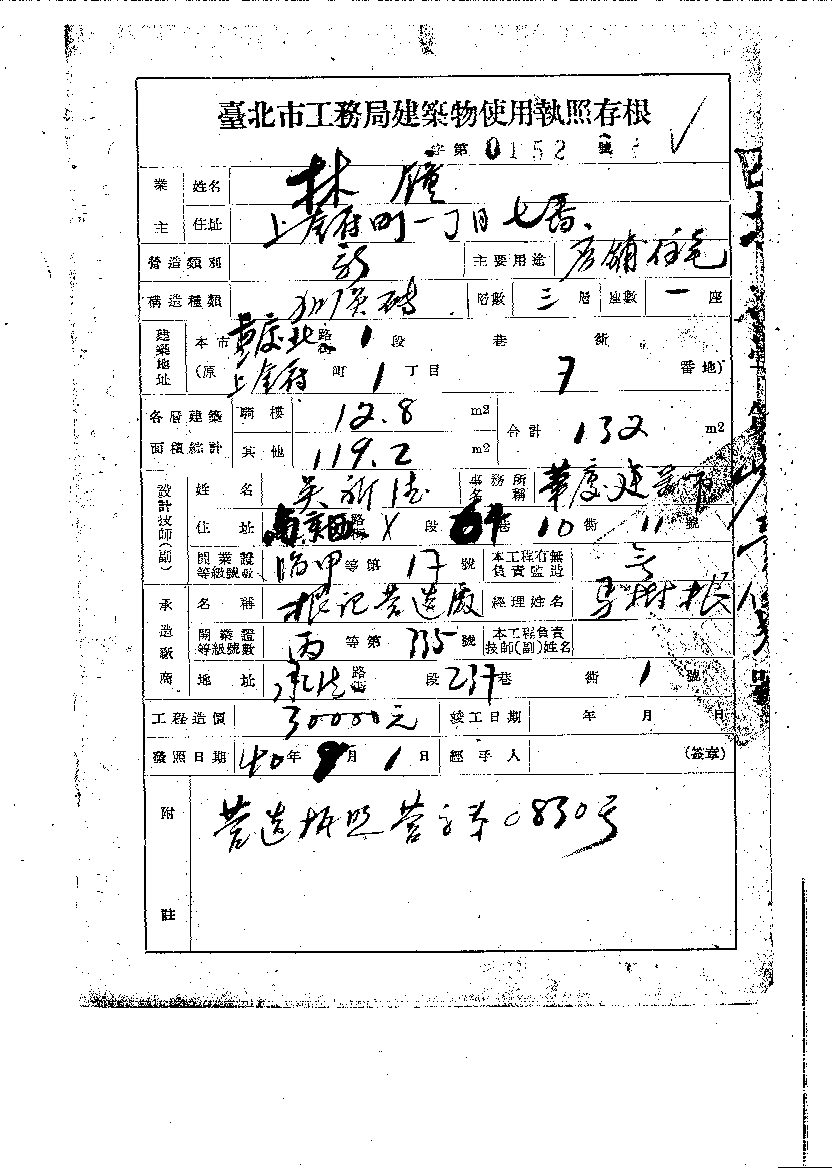 臺北市工務局建築物使用執照存根
字第 0152 號
業主 姓名 林
住址 町一丁目七番
營造類別 新 主要用途 店鋪住宅
構造種類 磚 層數 三 層 座數 一 座
建築地址 本市 重慶北 路街 1 段 巷 街 號
(原 町 1 丁目 7 番地)
各層建築面積綜計 騎樓 12.8 m2 合計 132 m2
其他 119.2 m2
設計技師(副) 姓名 吳 事務所名稱 華慶建
住址 南京西 路街 X 段 64 巷 10 衖 11 號
開業證等級號數 臨甲 等第 17 號 本工程有無負責監造
承造廠商 名稱 根記營造廠 經理姓名 馬樹根
開業證等級號數 丙 等第 335 號 本工程負責技師(副)姓名
地址 承德 路街 段 237 巷 衖 1 號
工程造價 30000元 竣工日期 年 月 日
發照日期 40 年 9 月 1 日 經手人 (簽章)
附註 營造執照營 字第 0830号